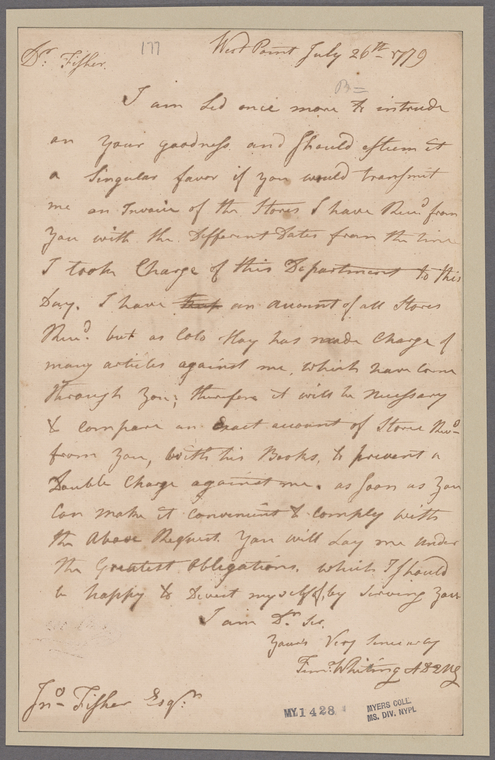 West Point July 26th 1779
Dr. Fisher.
177
I am Led once more to intrude
on your goodness and should esteem it
a Singular favor if you would transmit
me an Invoice of the Stores I have Recd from
you with the Different Dates from the time
I took Charge of this Department to this
Day. I have kept an account of all Stores
Recd but as Colo Hay has made Charge of
many articles against me, which have come
through you; therefore it will be necessary
to compare an Exact account of Stores Recd
from you, with his Books, to prevent a
Double Charge against me. as soon as you
Can make it convenient to comply with
the Above Request you will Lay me under
the Greatest Obligations. which I should
be happy to Divest myself of, by serving you
I am Dr Sir
Yours Very Sincerely
Timy Whiting ADQMG
Jno Fisher Esqr
MY 1428
MYERS COLL.
MS. DIV. NYPL